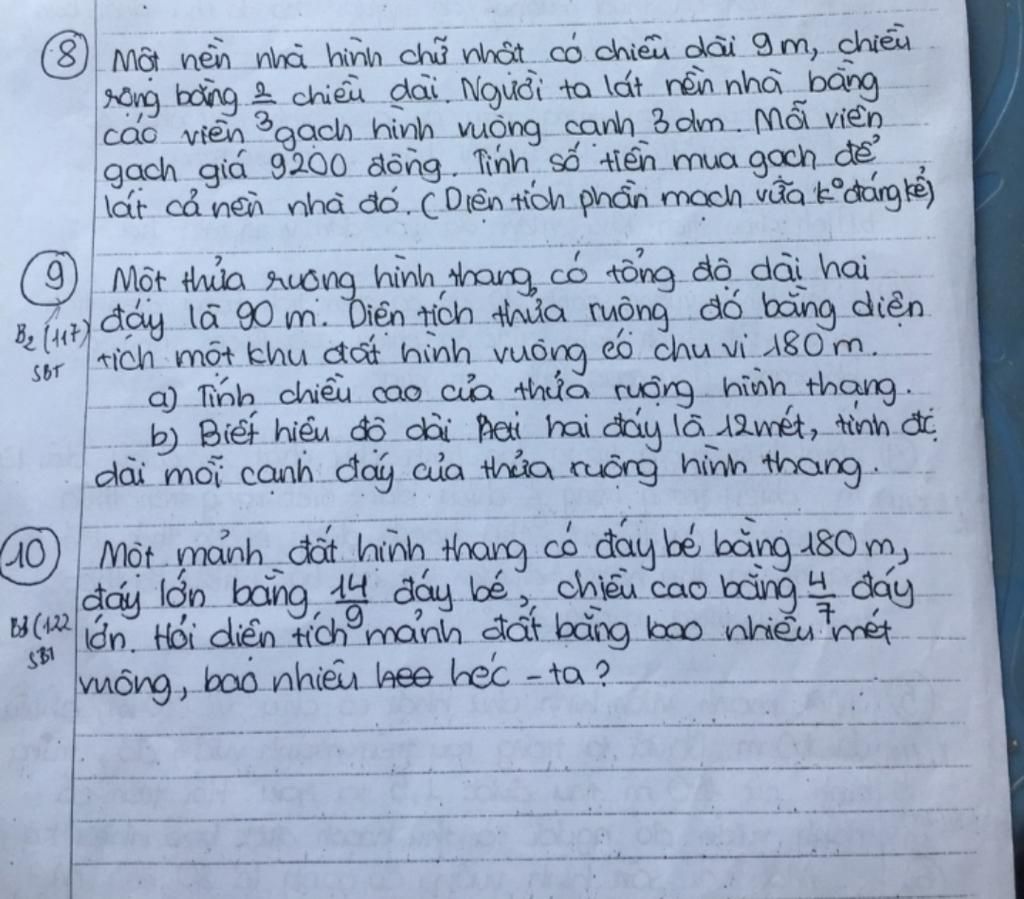 8 Một nền nhà hình chữ nhật có chiều dài 9m, chiều
rộng bằng 2/3 chiều dài. Người ta lát nền nhà bằng
các viên gạch hình vuông cạnh 3dm. Mỗi viên
gạch giá 9200 đồng. Tính số tiền mua gạch để
lát cả nền nhà đó. (Diện tích phần mạch vữa k° đáng kể)
9 Một thửa ruộng hình thang có tổng độ dài hai
B2 (117) đáy là 90 m. Diện tích thửa ruộng đó bằng diện
SBT tích một khu đất hình vuông có chu vi 180m.
a) Tính chiều cao của thửa ruộng hình thang.
b) Biết hiệu độ dài hai đáy là 12 mét, tính độ
dài mỗi cạnh đáy của thửa ruộng hình thang.
10 Một mảnh đất hình thang có đáy bé bằng 180m,
đáy lớn bằng 14/9 đáy bé, chiều cao bằng 4/7 đáy
(122 lớn. Hỏi diện tích mảnh đất bằng bao nhiêu mét
SBT vuông, bao nhiêu héc - ta?